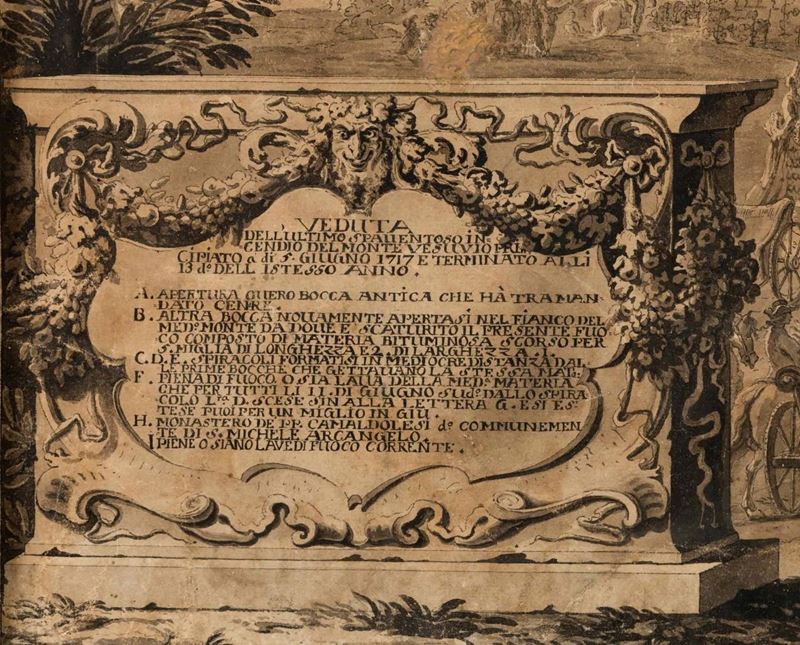 VEDUTA
DELL'ULTIMO SPAUENTOSO IN-
CENDIO DEL MONTE VESUVIO PRIN-
CIPIATO a dì 5. GIUGNO 1717 E TERMINATO ALLI
13 dº DELL ISTESSO ANNO.
A. APERTURA OUERO BOCCA ANTICA CHE HÀ TRAMAN-
DATO CENRE.
B. ALTRA BOCCA NOUAMENTE APERTASI NEL FIANCO DEL
MEDº MONTE DA DOUE E SCATURITO IL PRESENTE FUO-
CO COMPOSTO DI MATERIA BITUMINOSA SCORSO PER
5. MIGLIA DI LONGHEZZA E 2. DI LARGHEZZA
C.D.E. SPIRACOLI FORMATISI IN MEDIOCRE DISTANZA DAL-
LE PRIME BOCCHE CHE GETTAUANO LA STESSA MAB:
F. PIENA DI FUOCO, O SIA LAUA DELLA MEDª MATERIA
CHE PER TUTTI LI DI GIUGNO SUDº DALLO SPIRA-
COLO Lª D. SCESE SIN ALLA LETTERA G. E SI ES-
TESE PUOI PER UN MIGLIO IN GIÙ.
H. MONASTERO DE' P.P. CAMALDOLESI dº COMMUNEMEN-
TE DI S. MICHELE ARCANGELO.
I PIENE O SIANO LAVE DI FUOCO CORRENTE.